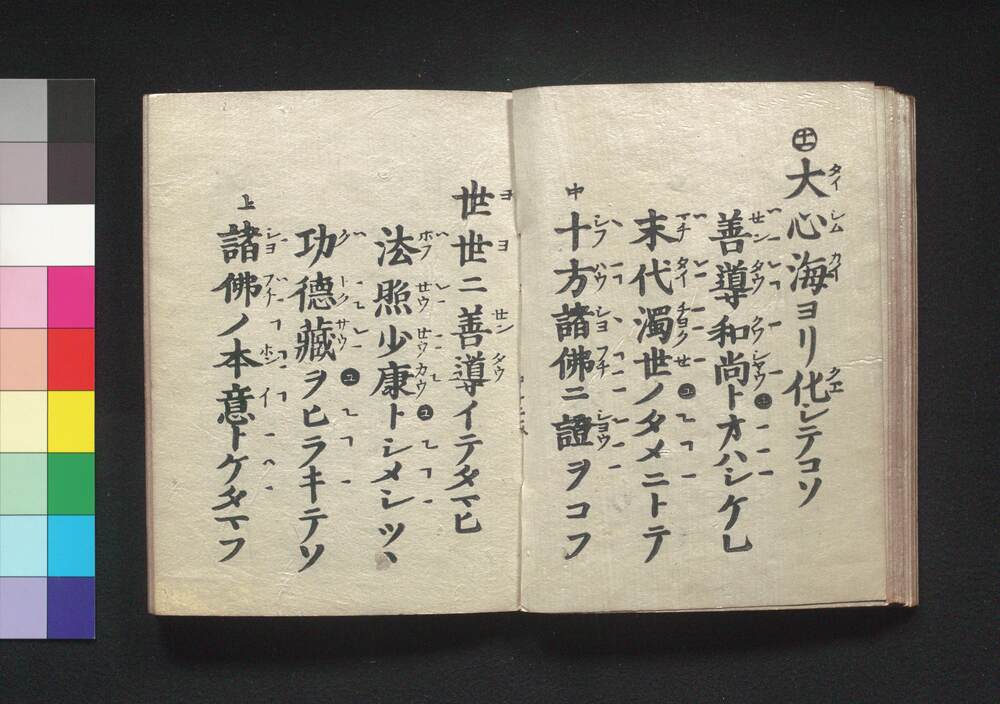 大心海ヨリ化シテコソ
善導和尚トオハシケレ
末代濁世ノタメニトテ
中 十方諸佛ニ證ヲコフ
世世ニ善導イテタマヒ
法照少康トシメシツヽ
功德藏ヲヒラキテソ
上 諸佛ノ本意トケタマフ